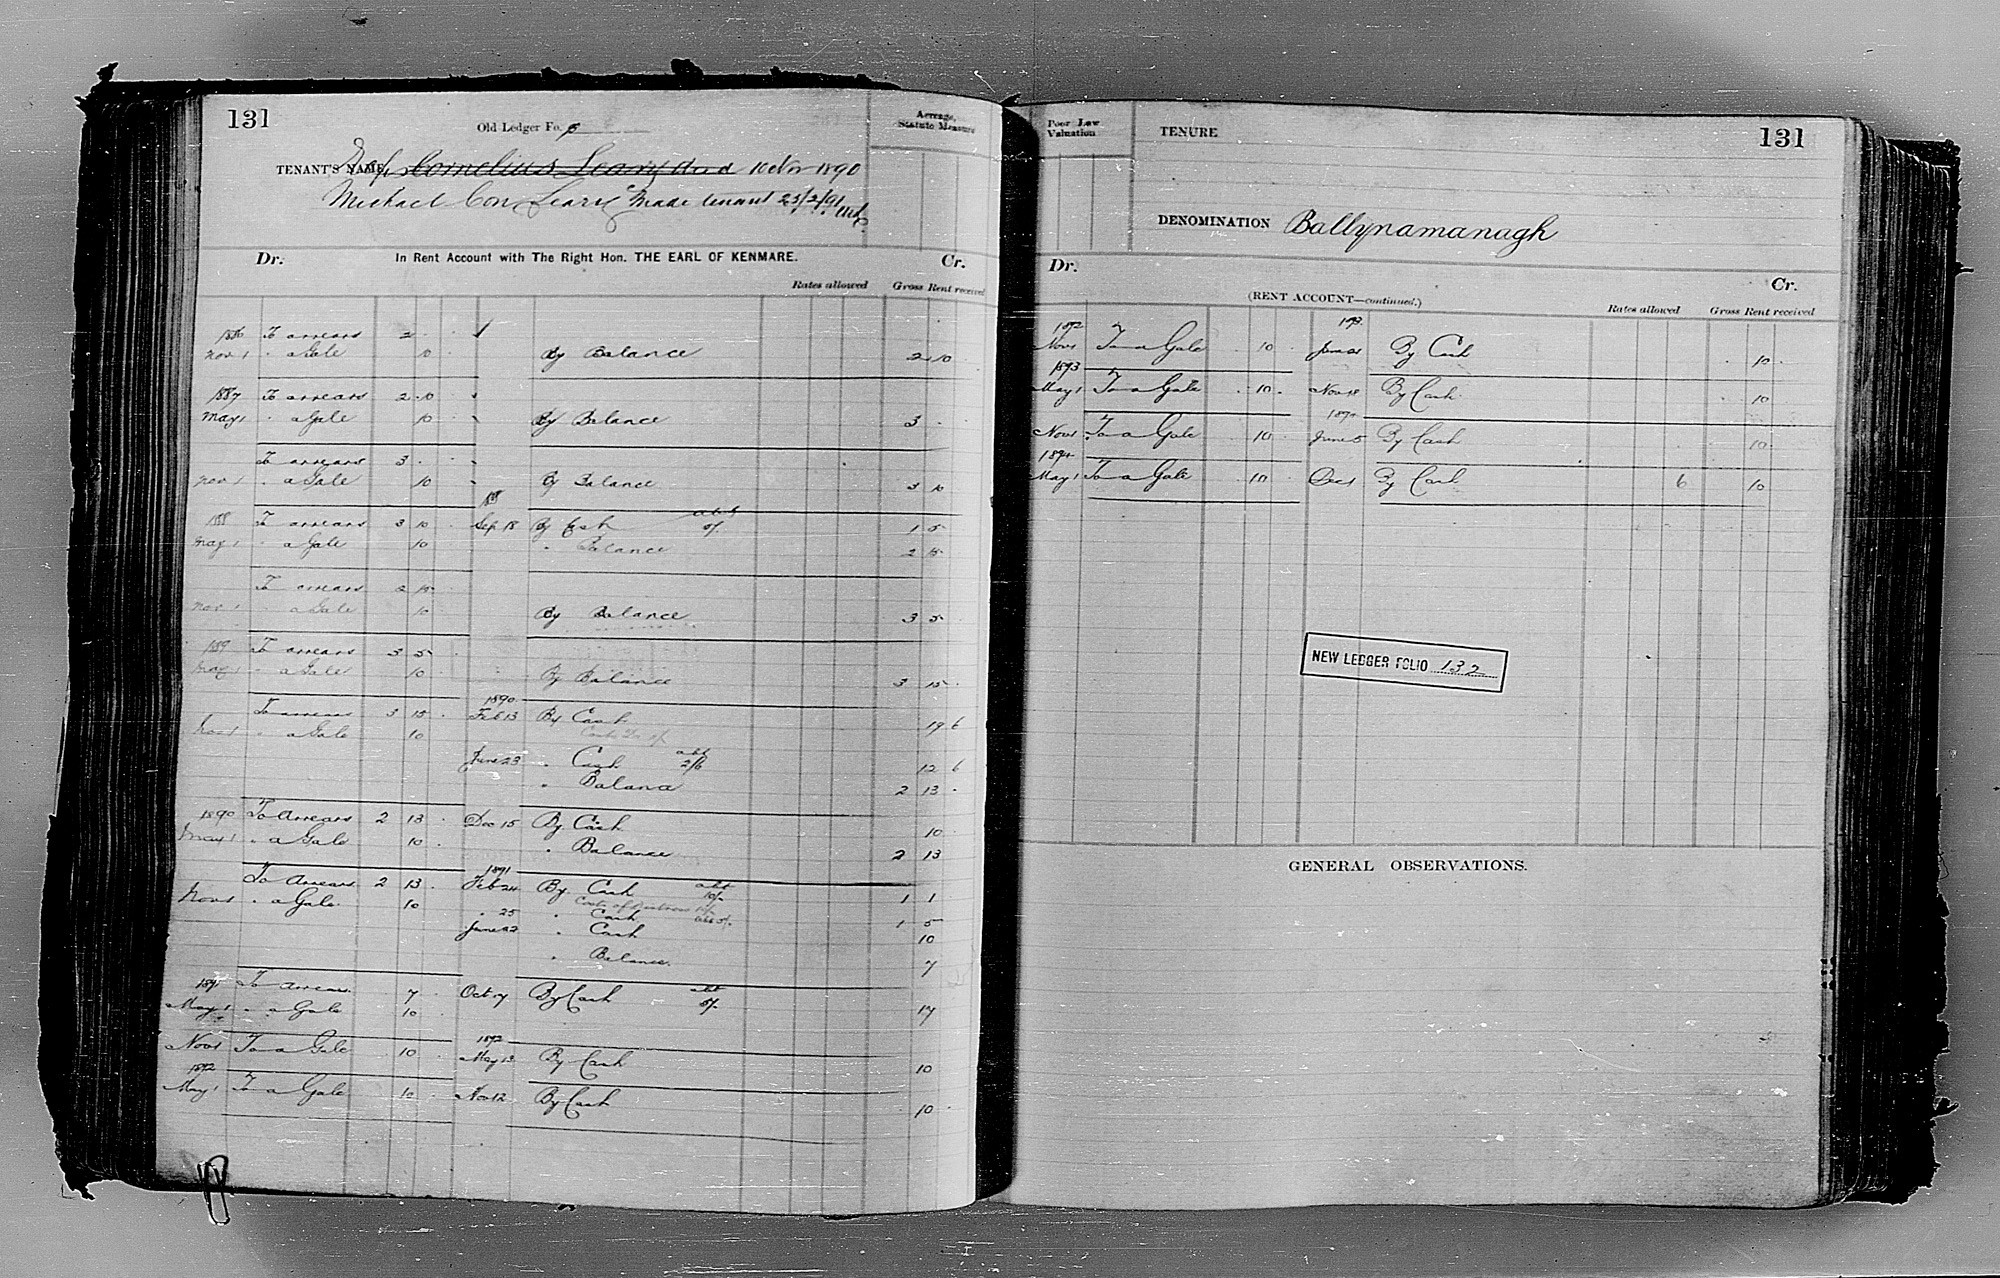 131
Old Ledger Fo. 6
Acreage, Statute Measure
TENANT'S NAME, Cornelius Leary dead 10 Nov 1890
Michael Con Leary made tenant 23/2/91
Dr. In Rent Account with The Right Hon. THE EARL OF KENMARE. Cr.
Rates allowed Gross Rent received
1886 To arrears 2 . .
Nov 1 " a Gale 10 By Balance 2 10
1887 To arrears 2 10
May 1 " a Gale 10 By Balance 3 .
To arrears 3 .
Nov 1 " a Gale 10 By Balance 3 10
1888
1888 To arrears 3 10 Sep 18 By Cash abt 5/. 1 5
May 1 " a Gale 10 " Balance 2 15
To arrears 2 15
Nov 1 " a Gale 10 By Balance 3 5
1889 To arrears 3 5
May 1 " a Gale 10 By Balance 3 15
1890
To arrears 3 15 Feb 13 By Cash 19 6
Nov 1 " a Gale 10
June 23 " Cash abt 2/6 12 6
" Balance 2 13 .
1890 To Arrears 2 13 Dec 15 By Cash 10
May 1 " a Gale 10 " Balance 2 13
1891
To Arrears 2 13 Feb 24 By Cash abt 10/- 1 1
Nov 1 " a Gale 10
" 25 " Cash abt 5/. 1 5
June 22 " Cash 10
" Balance. 7
1891 To arrears 7 Oct 17 By Cash abt 5/. 17
May 1 " a Gale 10
1892
Nov 1 To a Gale 10 May 13 By Cash 10
1892
May 1 To a Gale 10 Nov 12 By Cash 10
Poor Law Valuation
TENURE
131
DENOMINATION Ballynamanagh
Dr. Cr.
(RENT ACCOUNT—continued.)
Rates allowed Gross Rent received
1892 1893
Nov 1 To a Gale 10 Jan 21 By Cash 10
1893
May 1 To a Gale 10 Nov 18 By Cash 10
1894
Nov 1 To a Gale 10 June 5 By Cash 10
1894
May 1 To a Gale 10 Dec 1 By Cash 6 10
NEW LEDGER FOLIO 132
GENERAL OBSERVATIONS.